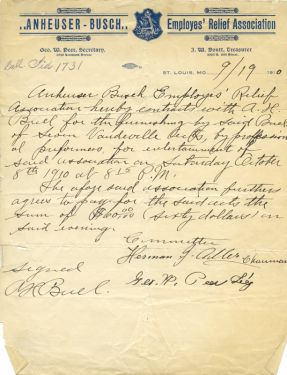 ..ANHEUSER - BUSCH.. Employes' Relief Association
Geo. W. Peer, Secretary,
J. W. Boutt, Treasurer
Call Sid 1731
ST. LOUIS, MO. 9/19 1910
Anheuser Busch Employes' Relief
Association hereby contracts with A. K.
Buel for the furnishing by said Buel
of Seven Vaudeville acts, by profession
al performers, for entertainment of
said association on Saturday October
8th 1910 at 8 15 P.M.
The afore said association further
agrees to pay for the said acts the
sum of $60.00 (sixty dollars) on
said evening.
Committee
Herman J. Adler Chairman
signed
A K Buel. Geo. W. Peer Secy